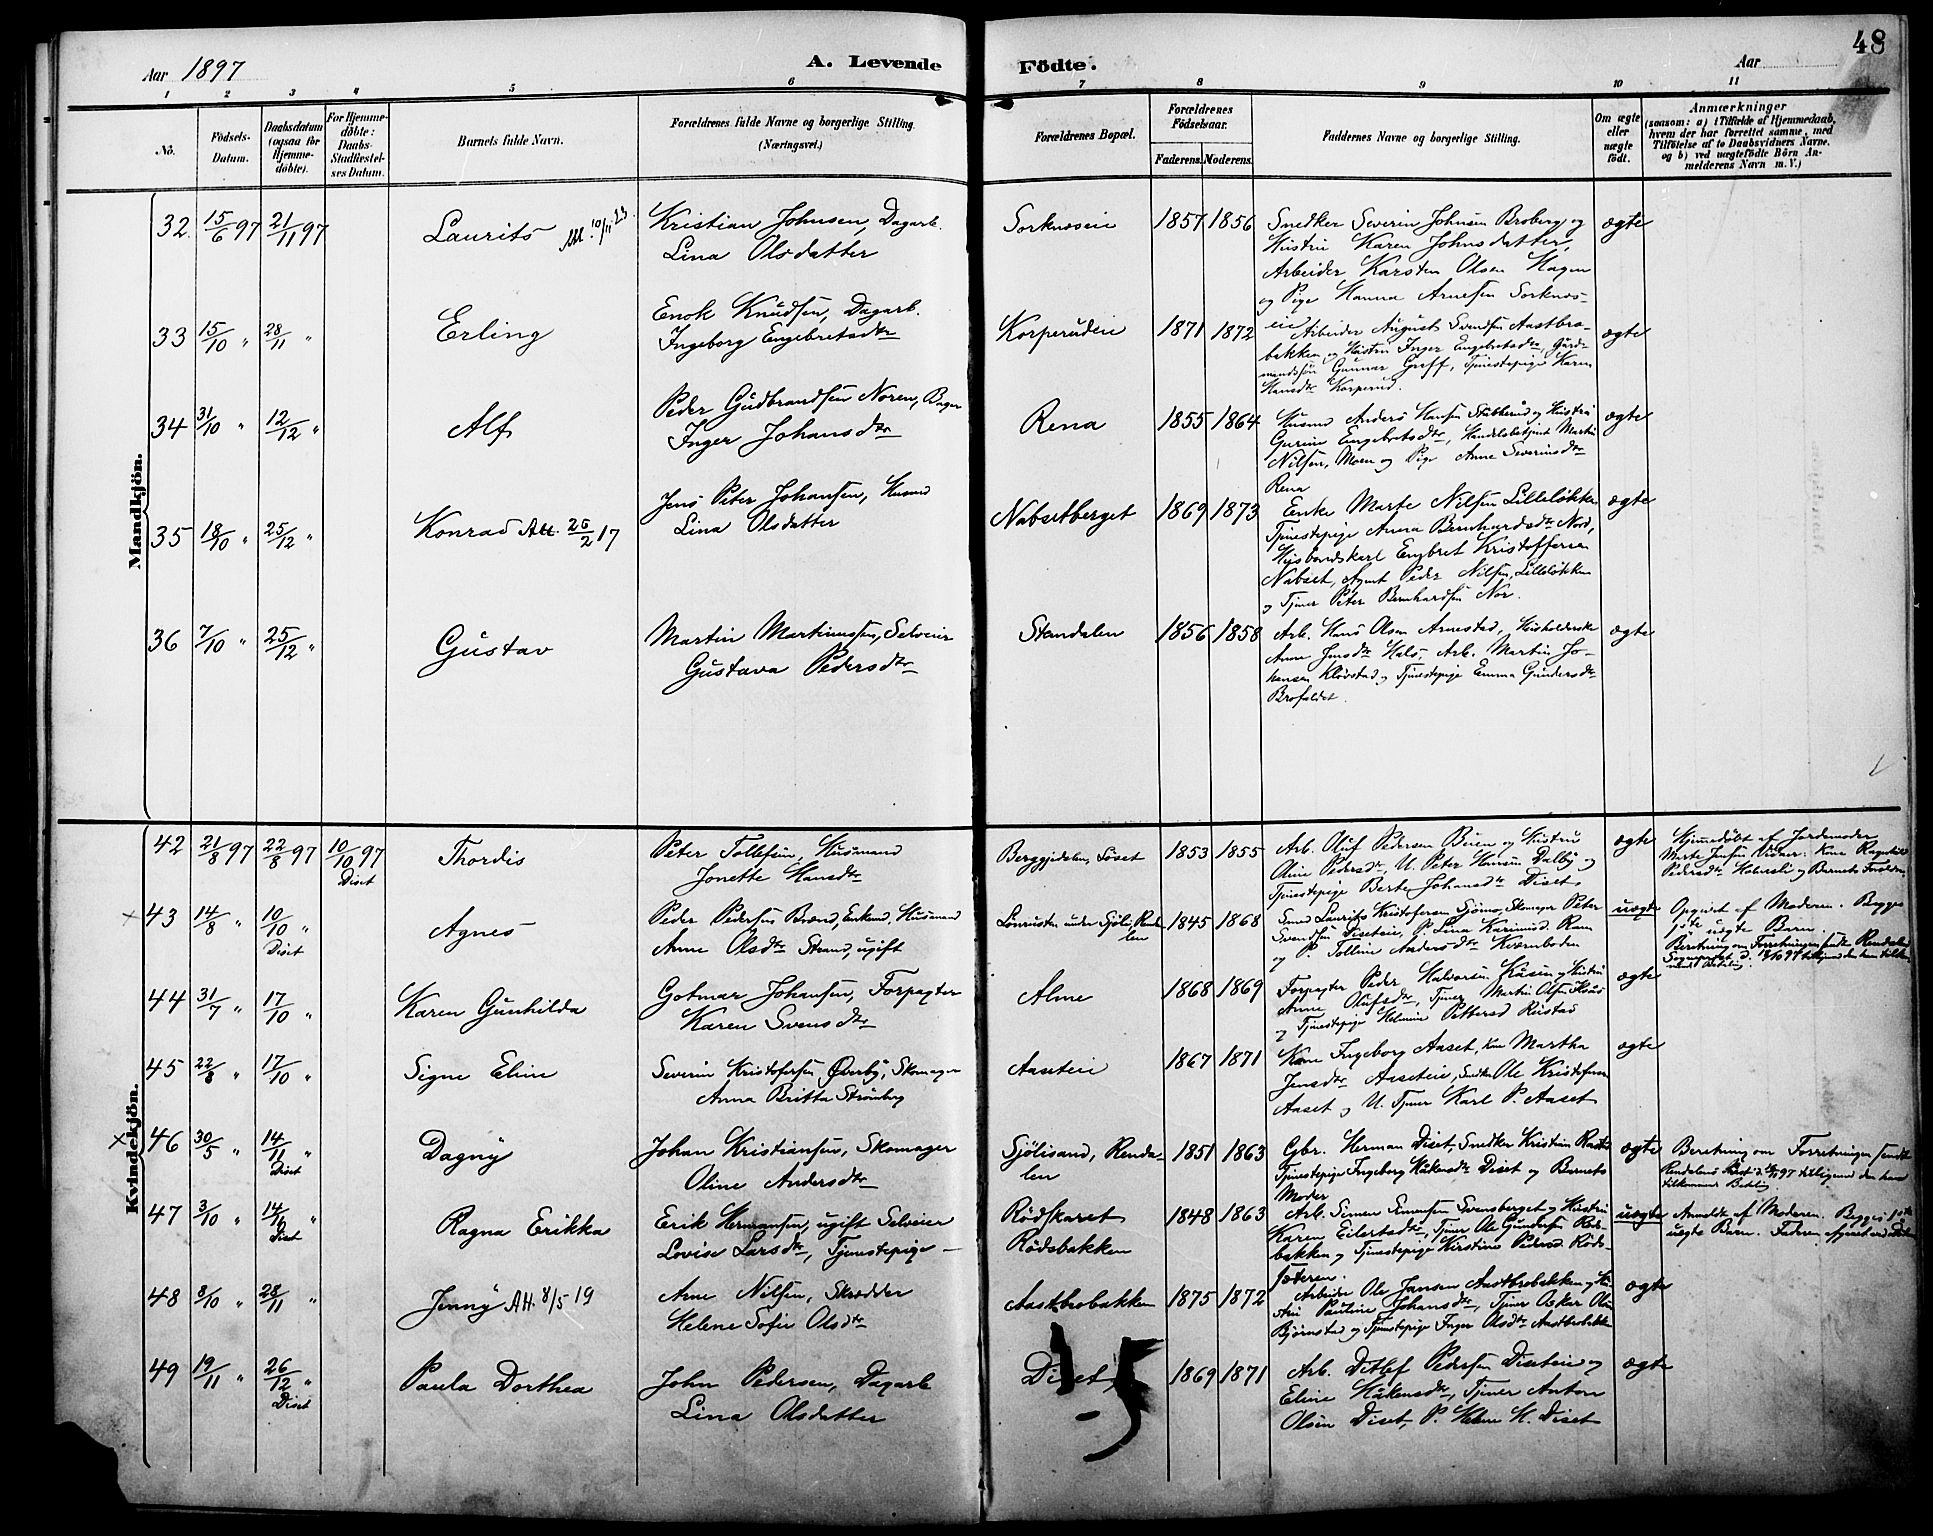 48
Aar 1897
A. Levende
Födte.
Aar
1 2 3 4 5 6 7 8 9 10 11
No.
Födsels-
Datum.
Daabsdatum
(ogsaa for
Hjemme-
døbte).
For Hjemme-
døbte:
Daabs-
Stadfæstel-
ses Datum.
Barnets fulde Navn.
Forældrenes fulde Navne og borgerlige Stilling.
(Næringsvei.)
Forældrenes Bopæl.
Forældrenes
Födselsaar.
Faderens. Moderens.
Faddernes Navne og borgerlige Stilling.
Om ægte
eller
uægte
födt.
Anmærkninger
(saasom: a) i Tilfælde af Hjemmedaab,
hvem der har forrettet samme, med
Tilföielse af to Daabsvidners Navne,
og b) ved uægtefödte Börn An-
melderens Navn m. V.)
Mandkjön.
32. 15/6 97 21/11 97
Laurits
10/11 23.
Kristian Johnsen, Dagarb.
Lina Olsdatter
Sorknæseie
1857 1856
Snedker Severin Johnsen Broberg og
Hustru Karen Johnsdatter,
Arbeider Karsten Olsen Hagen
og Pige Hanna Arnesen Sorknæs-
eie
ægte
33 15/10 " 28/11 "
Erling
Enok Knudsen, Dagarb.
Ingeborg Engebretsdtr
Korperudeie
1871 1872
Arbeider August Svendsen Aastbro-
bakken og Hustru Inger Engebretsdtr, Gaard-
mandssøn Gunnar Groff, Tjenestepige Karen
Hansdtr Korperud.
ægte
34 31/10 " 12/12 "
Alf
Peder Gudbrandsen Noren, Bager
Inger Johansdtr
Rena
1855 1864
Husmd Anders Hansen Stubberud og Hustru
Gurine Engebretsdtr, Handelsbetjent Martin
Nilsen, Moen og Pige Anne Severinsdtr
Rena
ægte
35 18/10 " 25/12 "
Konrad Att. 26/2 17
Jens Peter Johansen, Husmd
Lina Olsdatter
Nabsetberget
1869 1873
Enke Marte Nilsen Lilleløkken
Tjenestepige Anna Bernhardsdtr Nord,
Engbret Kristoffersen
Nabset, Agent Peder Nilsen, Lilleløkken
og Tjener Peter Bernhardsen Nor.
ægte
36 7/10 " 25/12 "
Gustav
Martin Martinussen, Selveier
Gustava Pedersdtr
Stendalen
1856 1858
Arb. Hans Olsen Arnestad, Husholderske
Anne Jensdtr Hals, Arb. Martin Jo-
hansen Kløvstad og Tjenestepige Emma Gundersdtr
Brofaldet.
ægte
Kvindekjön.
42 21/8 97 22/8 97 10/10 97
Diset
Thordis
Peter Tollefsen, Husmand
Jonette Hansdtr
Berggjdalen, Löset
1853 1855
Arb. Oluf Pedersen Buien og Hustru
Oline Pedersdtr, U. Peter Hansen Dalby og
Tjenestepige Berte Johansdtr Diset
ægte
Hjemmedøbt af Jordemoder
Marte Jensen, Vidner: Kone Ragnhild
Pedersdtr Haberli og Barnets Forældre
× 43 14/8 " 10/10 "
Diset
Agnes
Peder Pedersen Brænd, Enkemd. Husmand
Anne Olsdtr Strand, ugift
Lomrusten under Sjöli, Renda-
len
1845 1868
Smed Laurits Kristofersen Sjömo, Skomager Peter
Svendsen Diseteie, P. Lina Karinusd. Ram
og P. Polline Andersdtr Kværnboden
uægte
Opgivet af Moderen. Begges
1ste uægte Barn.
Beretning om Forretningen sendt Rendalens
Sogneprest d. 12/10 97 tilligemed den ham tilkom-
mende Betaling.
44 31/7 " 17/10 "
Karen Gunhilda
Gotmar Johansen, Forpagter
Karen Svensdtr
Alme
1868 1869
Forpagter Peder Halvorsen Kaasen og Hustru
Anne Olufsdtr, Tjener Martin Olsen
og Tjenestepige Helmine Pettersd Rustad
ægte
45 22/8 " 17/10 "
Signe Eline
Severin Kristofersen Øverby, Skomager
Anna Britta Strömberg
Aaseteie
1867 1871
Kone Ingeborg Aaset, Kone Martha
Jensdtr Aaseteie, Snedker Ole Kristofersen
Aaset og U. Tjener Karl P. Aaset
ægte
× 46 30/5 " 14/11 "
Diset
Dagny
Johan Kristiansen, Skomager
Oline Andersdtr
Sjölisand, Renda-
len
1851 1863
Gbr. Herman Diset, Snedker Kristian
Tjenestepige Ingeborg Haakensdtr Diset og Barnets
Moder
ægte
Beretning om Forretningen sendt
Rendalens Prest d. 97 tilligemed den ham
tilkommende Betaling
47 3/10 " 14/11 "
Diset
Ragna Erikka
Erik Hermansen, ugift Selveier
Lovise Larsdtr, Tjenestepige —
Rödskaret
Rödsbakken
1848 1863
Arb. Simen Simensen Svensberget og Hustru
Karen Eilertsdtr, Tjener Ole Gundersen Röds-
bakken og Tjenestepige Kirstine Pedersd. Röds-
sæteren.
uægte
Anmeldt af Moderen. Begges 1ste
uægte Barn. Faderen
48 8/10 " 28/11 "
Jenny Att. 8/5 19
Arne Nilsen, Skrædder
Helene Sofie Olsdtr
Aastbrobakken
1875 1872
Arbeider Ole Jansen Aastbrobakken og Hu-
stru Pauline Johansdtr, Tjener Oskar Olsen
Bjørnstad og Tjenestepige Inger Olsdtr Aastbrobakken
ægte
49 19/11 " 26/12 "
Diset
Paula Dorthea
John Pedersen, Dagarb
Lina Olsdatter
Diset
1869 1871
Arb. Ditlef Pedersen Diseteie og
Eline Haakensdtr, Tjener Anton
Olsen Diset, P. Helene H. Diset
ægte
15